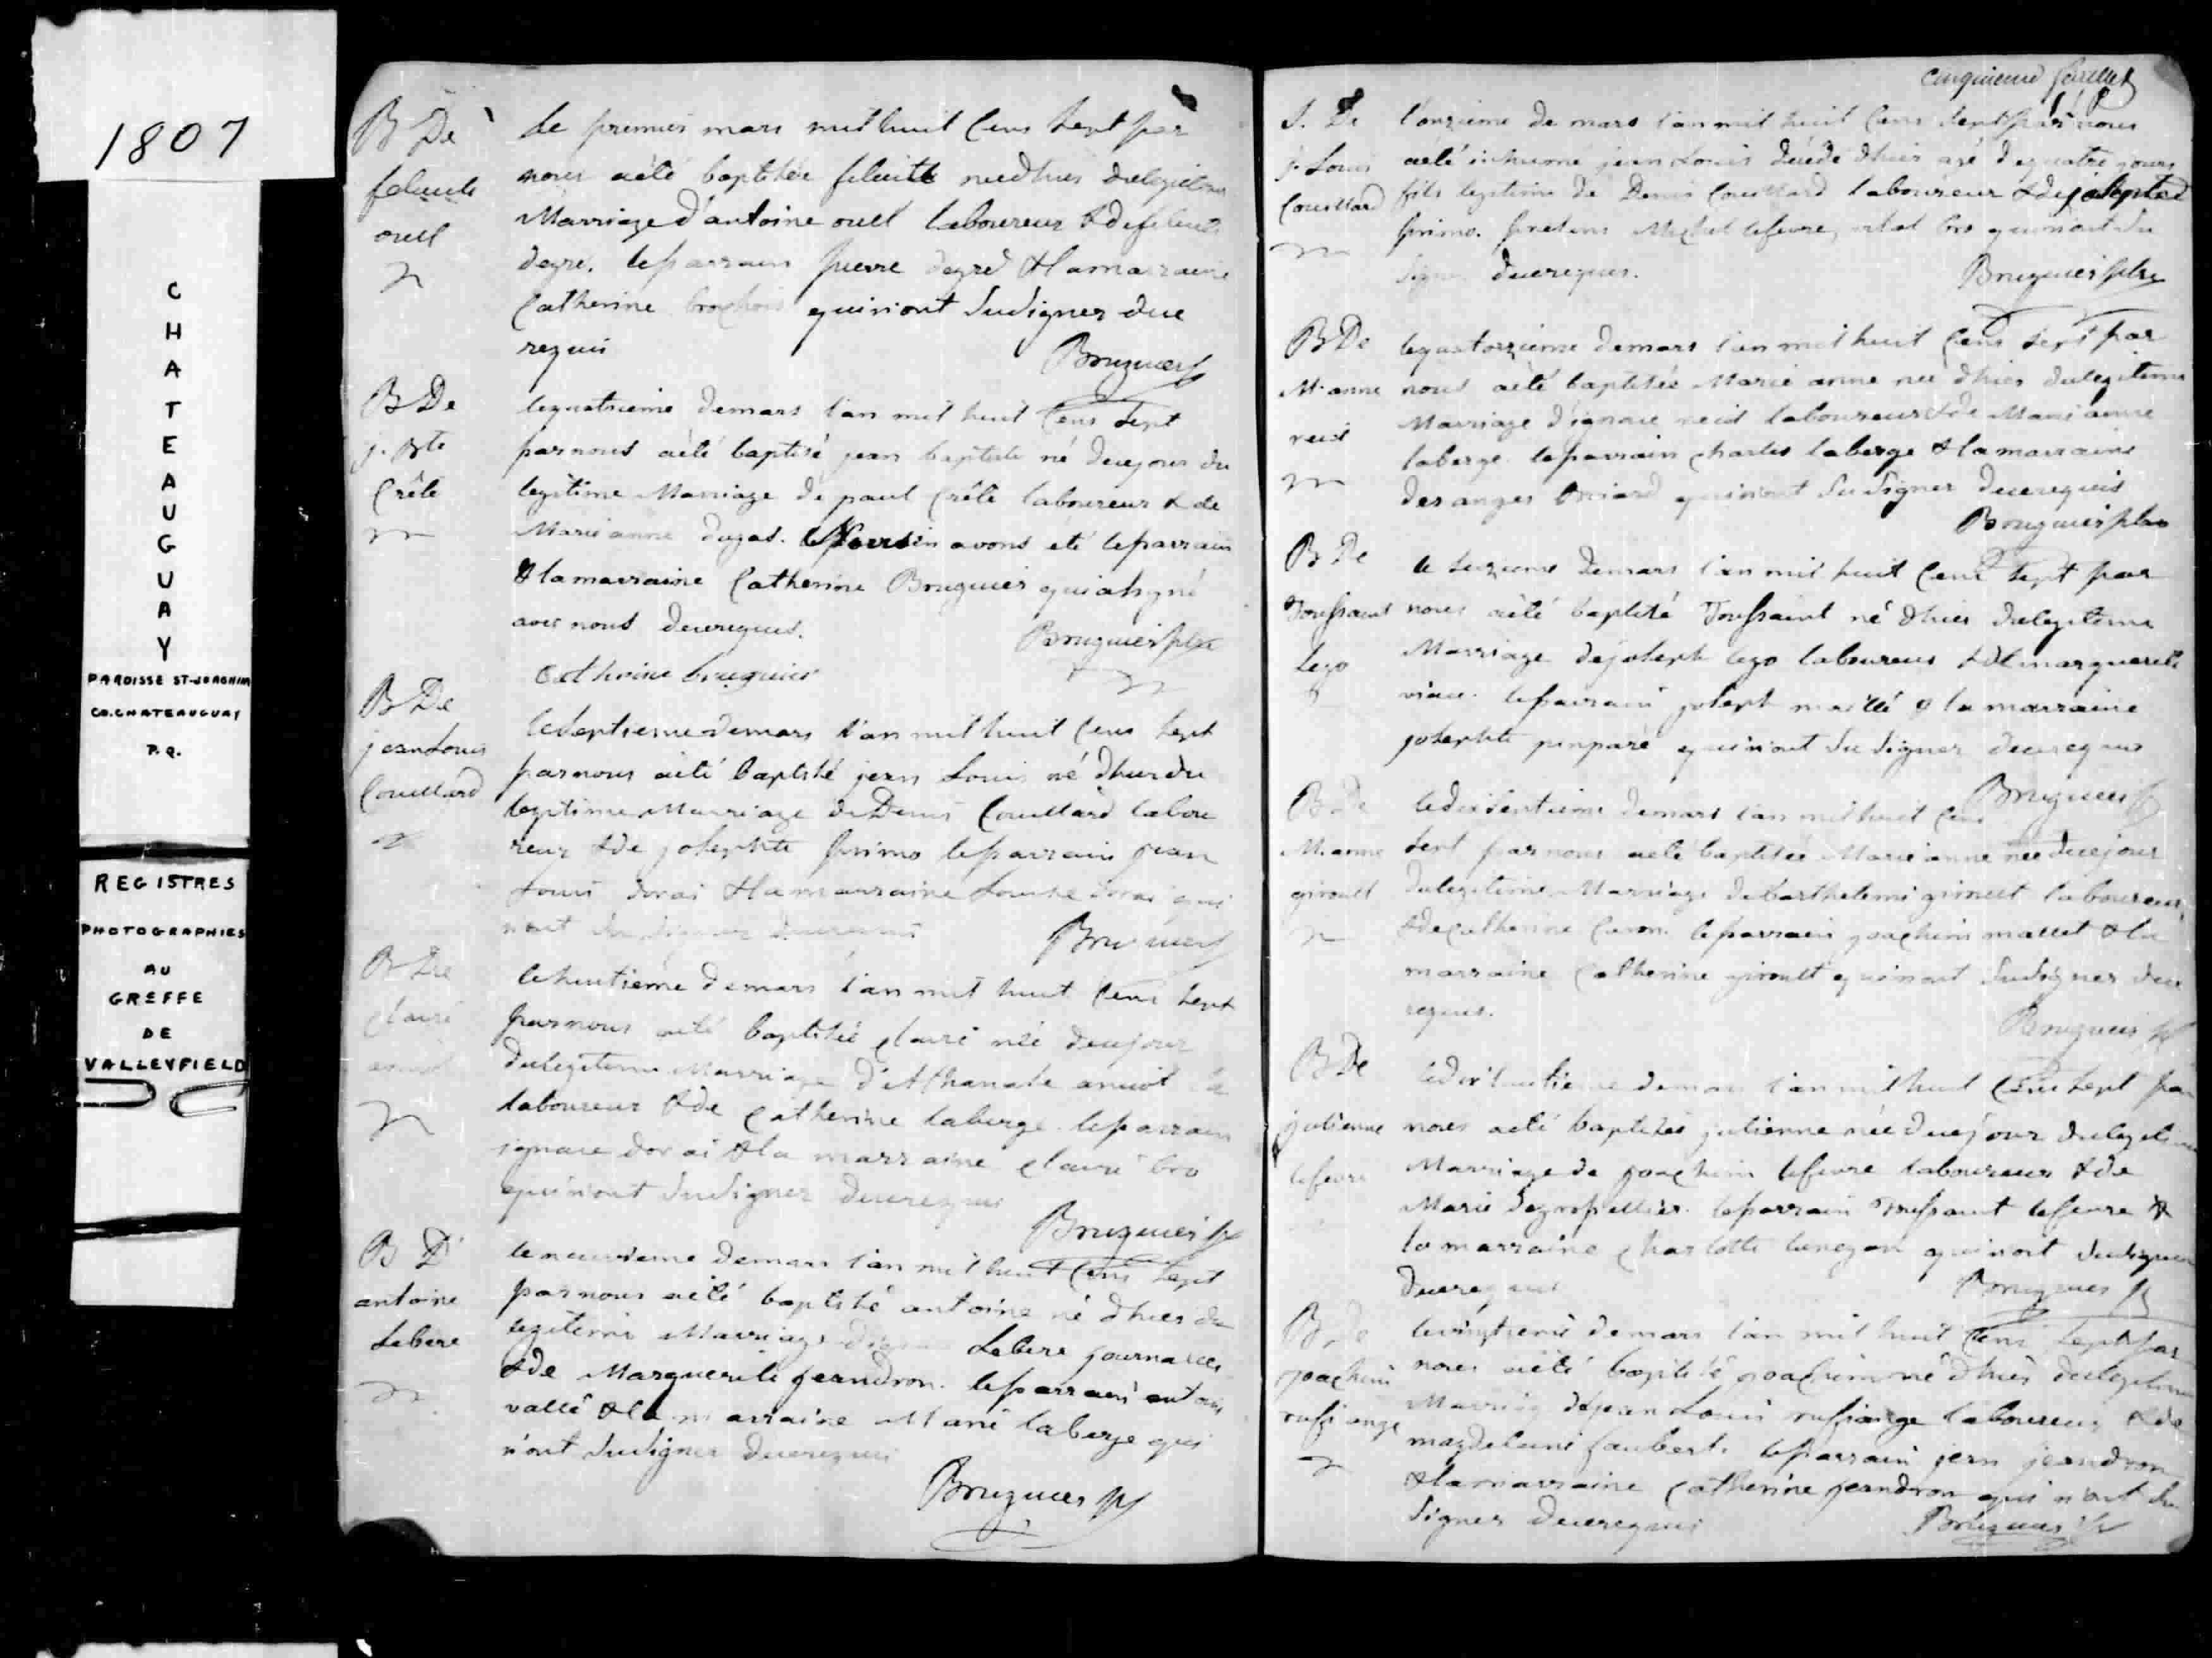 1807
CHATEAUGUAY
PAROISSE ST-JOACHIM
CO. CHATEAUGUAY
P.Q.
REGISTRES
PHOTOGRAPHIES
AU
GREFFE
DE
VALLEYFIELD
B De
felicité
ouell
le premier mars mil huit cens sept par
nous aété baptisée felicité née d'hier du legitime
Marriage d'antoine ouell laboureur & de felicité
degré. le parrain pierre degré & la marraine
Catherine brochois qui n'ont su signer de ce
requis
Bruguier ptre
B De
j. Bte
Crête
le quatrieme de mars l'an mil huit cens sept
par nous aété baptisé jean baptiste né de ce jour du
legitime Marriage de paul Crête laboureur & de
Marie anne dugas. avons eté le parrain
& la marraine Catherine Bruguier qui a signé
avec nous de ce requis.
Bruguier ptre
Catherine bruguier
B De
jean Louis
Couillard
le septieme de mars l'an mil huit cens sept
par nous aété baptisé jean Louis né d'hier du
legitime Marriage de Denis Couillard labou
reur & de josephte primo le parrain jean
Louis dorai & la marraine Louise dorai qui
n'ont su signer de ce requis
Bruguier ptre
B De
claire
amiot
le huitiéme de mars l'an mil huit cens sept
par nous aété baptisée claire née de ce jour
du legitime Marriage d'Athanase amiot
laboureur & de Catherine laberge. le parrain
ignace dorai & la marraine claire bro
qui n'ont su signer de ce requis
Bruguier ptre
B D'
antoine
Lebere
le neuvieme de mars l'an mil huit cens sept
par nous aété baptisé antoine né d'hier du
legitime Marriage Lebere journalier
& de Marguerite jeandron. le parrain antoine
vallé & la marraine Marie laberge qui
n'ont su signer de ce requis
Bruguier ptre
Cinquieme feuillet
S. De
j. Louis
Couillard
l'onzieme de mars l'an mil huit cens sept par nous
aété inhumé jean Louis décédé d'hier agé de quatre jours
fils legitime de Denis Couillard laboureur & de josephte
primo. presens Michel lefevre, vital bro qui n'ont su
signer de ce requis.
Bruguier ptre
B De
M. anne
reid
le quatorzieme de mars l'an mil huit cens sept par
nous aété baptisée Marie anne née d'hier du legitime
Marriage d'ignace reid laboureur & de Marie anne
laberge. le parrain charles laberge & la marraine
des anges qui n'ont su signer de ce requis
Bruguier ptre
B De
Toussaint
lego
le seizieme de mars l'an mil huit cens sept par
nous aété baptisé Toussaint né d'hier du legitime
Marriage de joseph lego laboureur & de marguerite
viau. le parrain joseph maillé & la marraine
josephte pinparé qui n'ont su signer de ce requis
Bruguier ptre
B De
M. anne
giroult
le dixseptieme de mars l'an mil huit cens
sept par nous aété baptisée Marie anne née de ce jour
du legitime Marriage de barthelemi giroult laboureur,
& de catherine caron. le parrain joachim mallet & la
marraine Catherine giroult qui n'ont su signer de ce
requis.
Bruguier ptre
B De
julienne
lefevre
le dixhuitieme de mars l'an mil huit cens sept par
nous aété baptisée julienne née de ce jour du legitime
Marriage de joachim lefevre laboureur & de
Marie degropellier. le parrain Toussaint lefevre &
la marraine charlotte qui n'ont su signer
de ce requis
Bruguier ptre
B De
joachim
russiange
le vingtieme de mars l'an mil huit cens sept par
nous aété baptisé joachim né d'hier du legitime
Marriage de jean Louis russiange laboureur & de
magdeleine faubert. le parrain jean jeandron
& la marraine Catherine jeandron qui n'ont su
signer de ce requis
Bruguier ptre